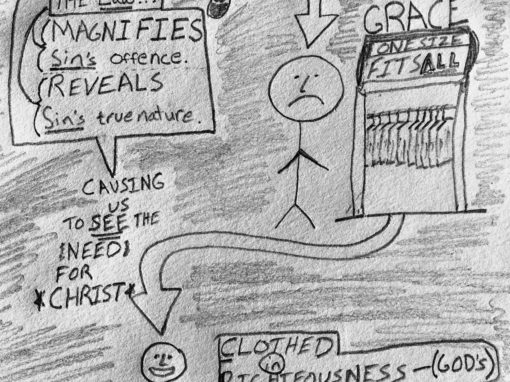 THE LAW...
MAGNIFIES
Sin's offence.
REVEALS
Sin's true nature.
CAUSING
US
TO SEE THE
NEED
FOR
*CHRIST*
GRACE
ONE SIZE
FITS ALL
CLOTHED
in
RIGHTEOUSNESS - (GOD'S)